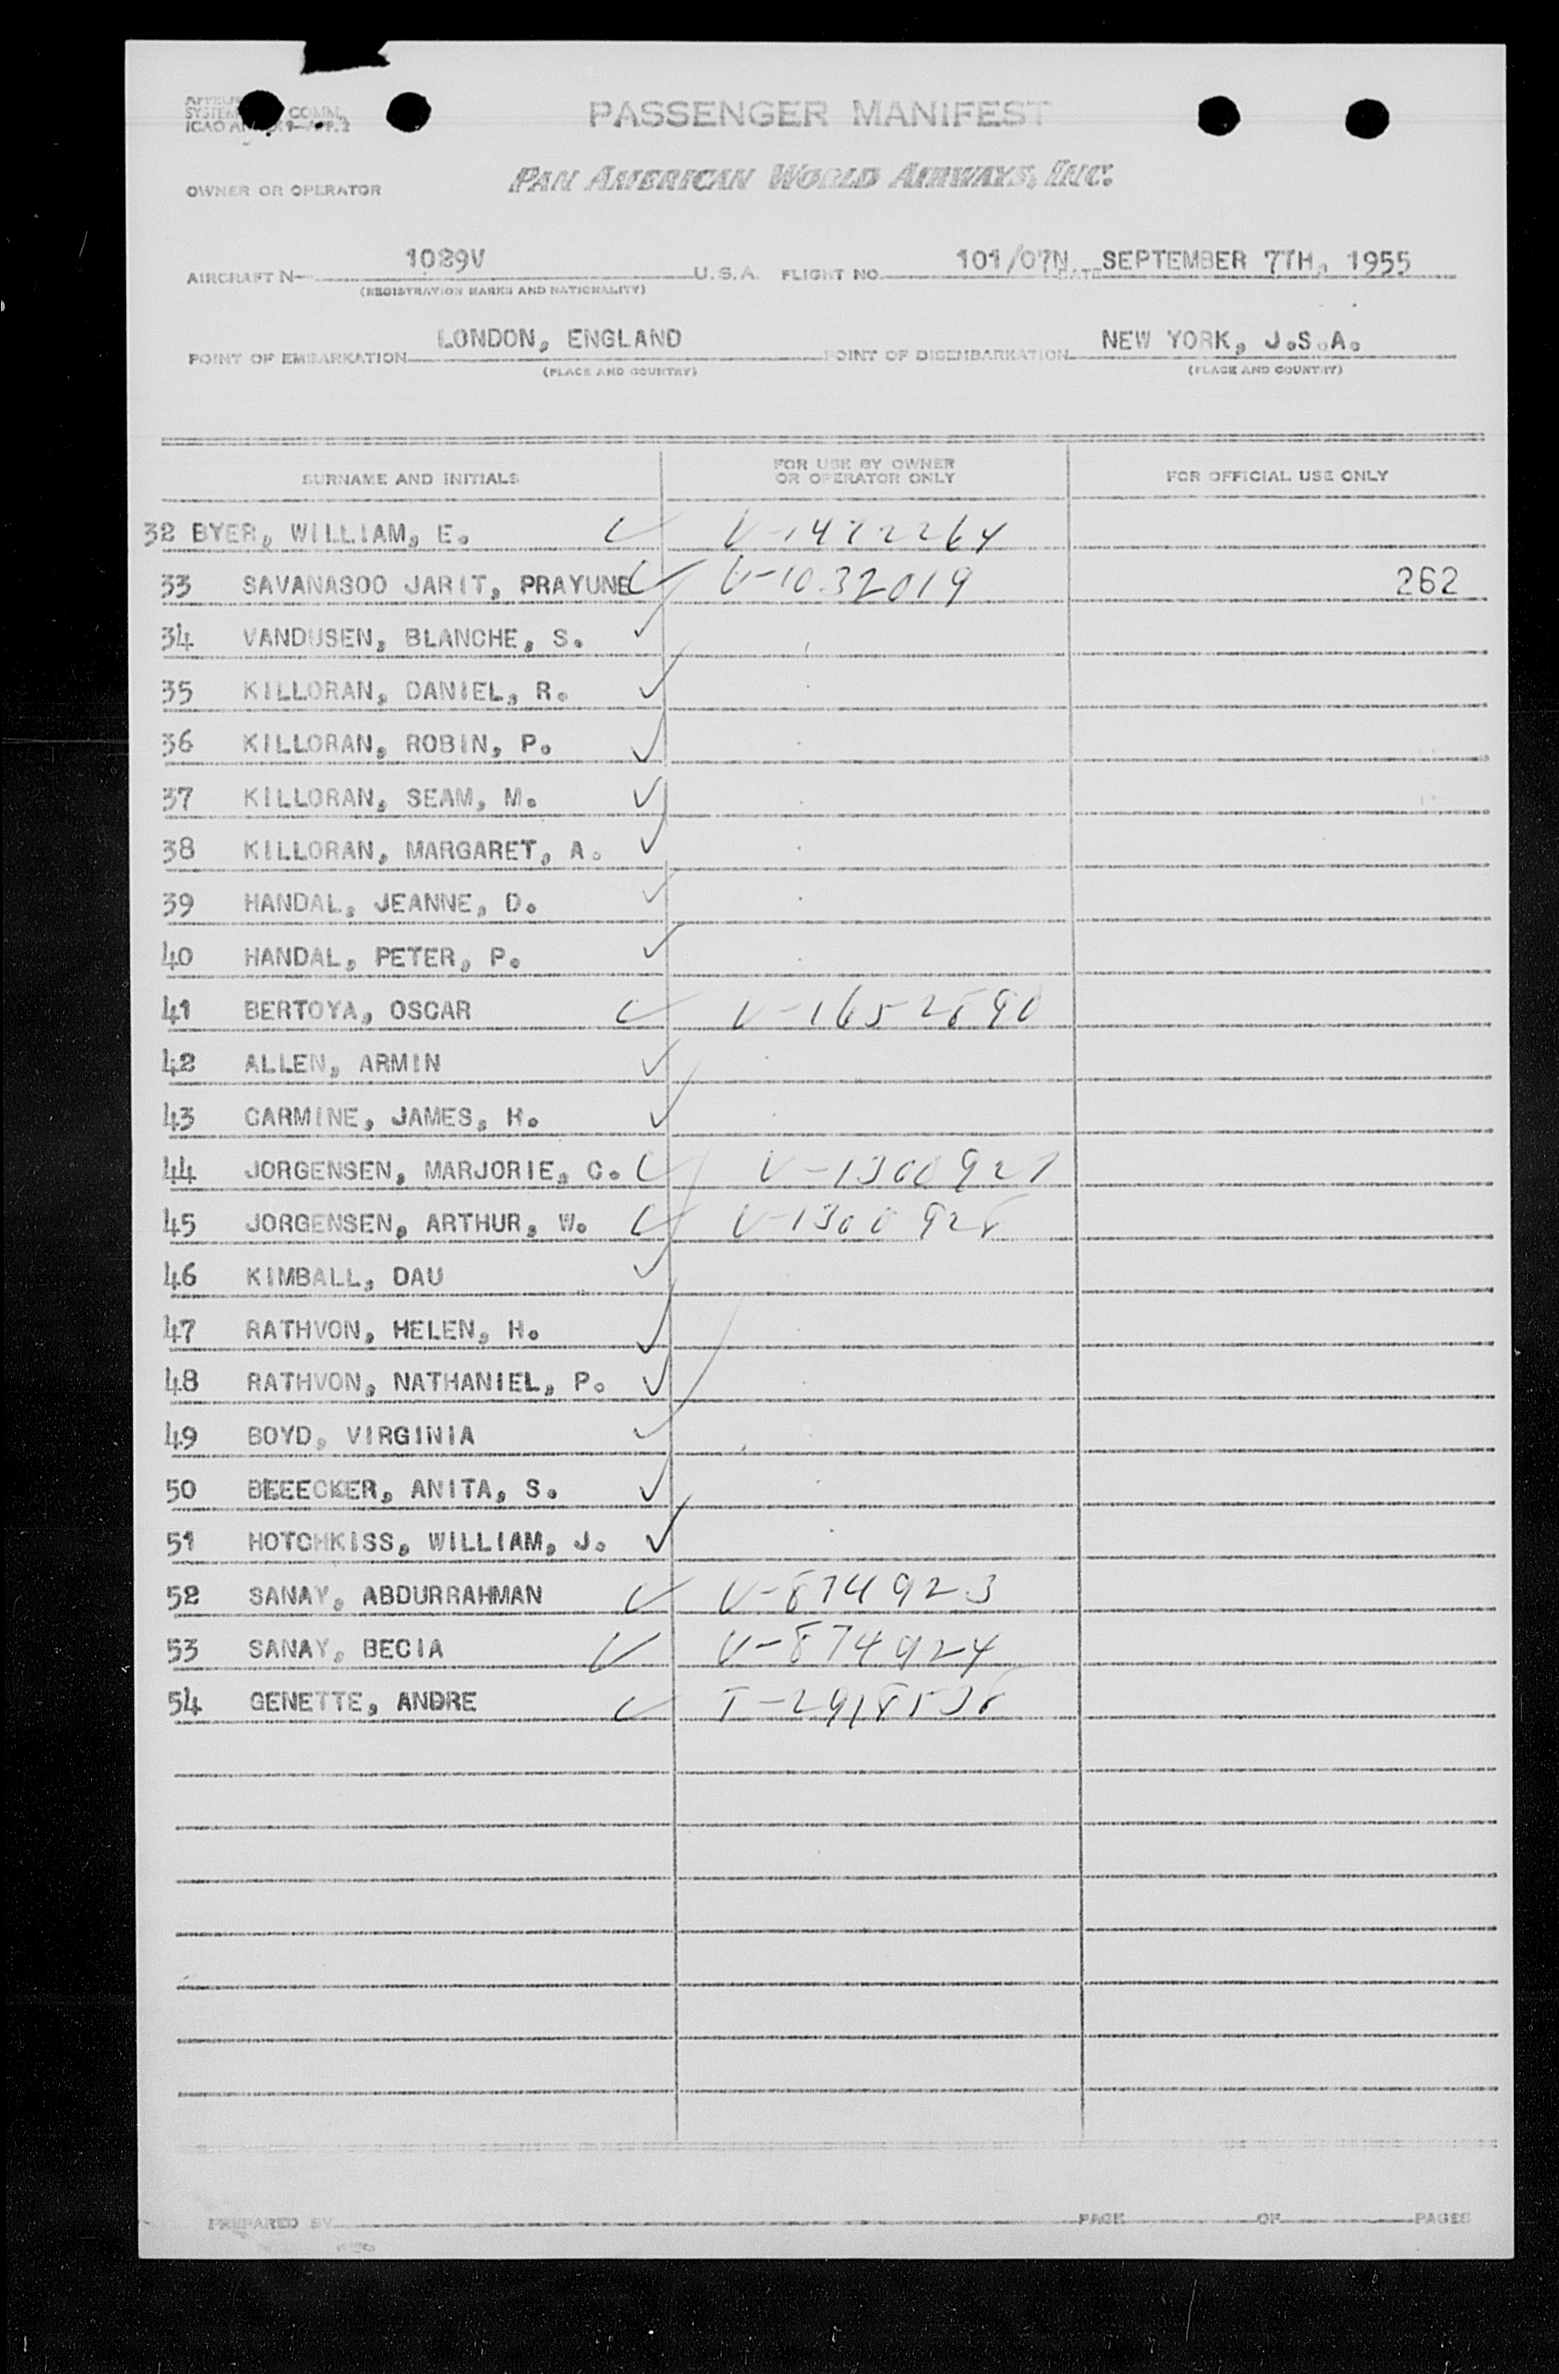 SYSTEM COMM.
ICAO AN 9—APP. 2
PASSENGER MANIFEST
PAN AMERICAN WORLD AIRWAYS, INC.
OWNER OR OPERATOR
AIRCRAFT N- 1029V U.S.A. FLIGHT NO. 101/07N DATE SEPTEMBER 7TH, 1955
(REGISTRATION MARKS AND NATIONALITY)
POINT OF EMBARKATION LONDON, ENGLAND POINT OF DISEMBARKATION NEW YORK, J.S.A.
(PLACE AND COUNTRY) (PLACE AND COUNTRY)
SURNAME AND INITIALS FOR USE BY OWNER OR OPERATOR ONLY FOR OFFICIAL USE ONLY
32 BYER, WILLIAM, E. V-1472264
33 SAVANASOO JARIT, PRAYUNE V-1032019 262
34 VANDUSEN, BLANCHE, S.
35 KILLORAN, DANIEL, R.
36 KILLORAN, ROBIN, P.
37 KILLORAN, SEAM, M.
38 KILLORAN, MARGARET, A.
39 HANDAL, JEANNE, D.
40 HANDAL, PETER, P.
41 BERTOYA, OSCAR V-1652890
42 ALLEN, ARMIN
43 CARMINE, JAMES, H.
44 JORGENSEN, MARJORIE, C. V-1300927
45 JORGENSEN, ARTHUR, W. V-1300928
46 KIMBALL, DAU
47 RATHVON, HELEN, H.
48 RATHVON, NATHANIEL, P.
49 BOYD, VIRGINIA
50 BEEECKER, ANITA, S.
51 HOTCHKISS, WILLIAM, J.
52 SANAY, ABDURRAHMAN V-874923
53 SANAY, BECIA V-874924
54 GENETTE, ANDRE T-2918538
PREPARED BY PAGE OF PAGES